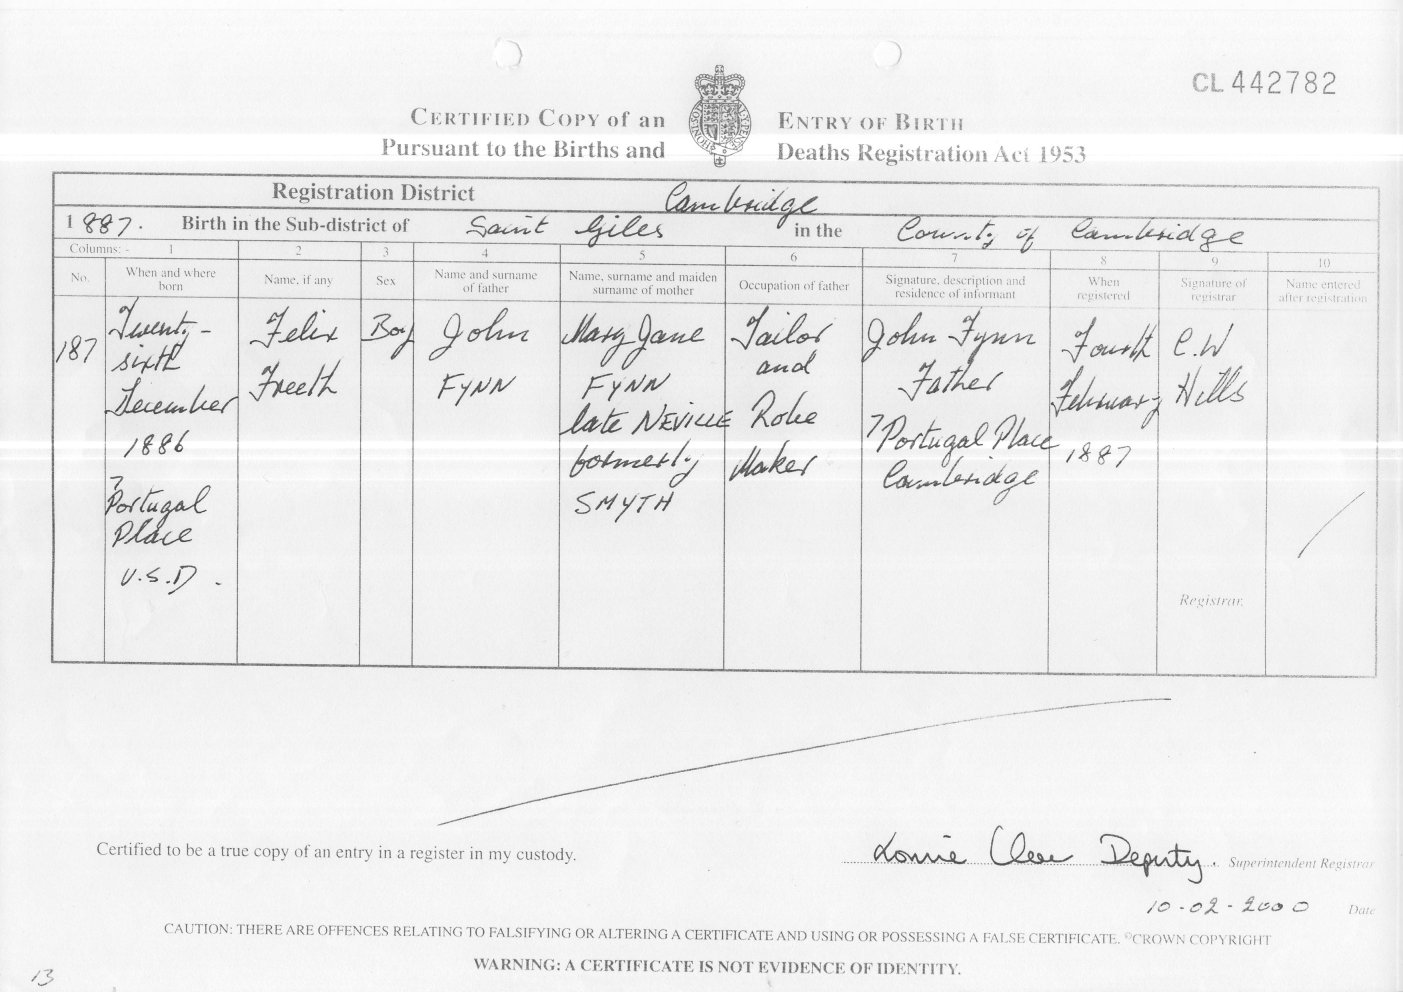 CL 442782
CERTIFIED COPY of an ENTRY OF BIRTH
Pursuant to the Births and Deaths Registration Act 1953
Registration District Cambridge
1887. Birth in the Sub-district of Saint Giles in the County of Cambridge
Columns:- 1 2 3 4 5 6 7 8 9 10
No.
When and where
born
Name, if any
Sex
Name and surname
of father
Name, surname and maiden
surname of mother
Occupation of father
Signature, description and
residence of informant
When
registered
Signature of
registrar
Name entered
after registration
187
Twenty-
sixth
December
1886
7
Portugal
Place
U.S.D.
Felix
Freeth
Boy
John
FYNN
Mary Jane
FYNN
late NEVILLE
formerly
SMYTH
Tailor
and
Robe
Maker
John Fynn
Father
7 Portugal Place
Cambridge
Fourth
February
1887
C.W
Hills
Registrar.
Certified to be a true copy of an entry in a register in my custody.
Deputy. Superintendent Registrar
10-02-2000 Date
CAUTION: THERE ARE OFFENCES RELATING TO FALSIFYING OR ALTERING A CERTIFICATE AND USING OR POSSESSING A FALSE CERTIFICATE. ©CROWN COPYRIGHT
WARNING: A CERTIFICATE IS NOT EVIDENCE OF IDENTITY.
13